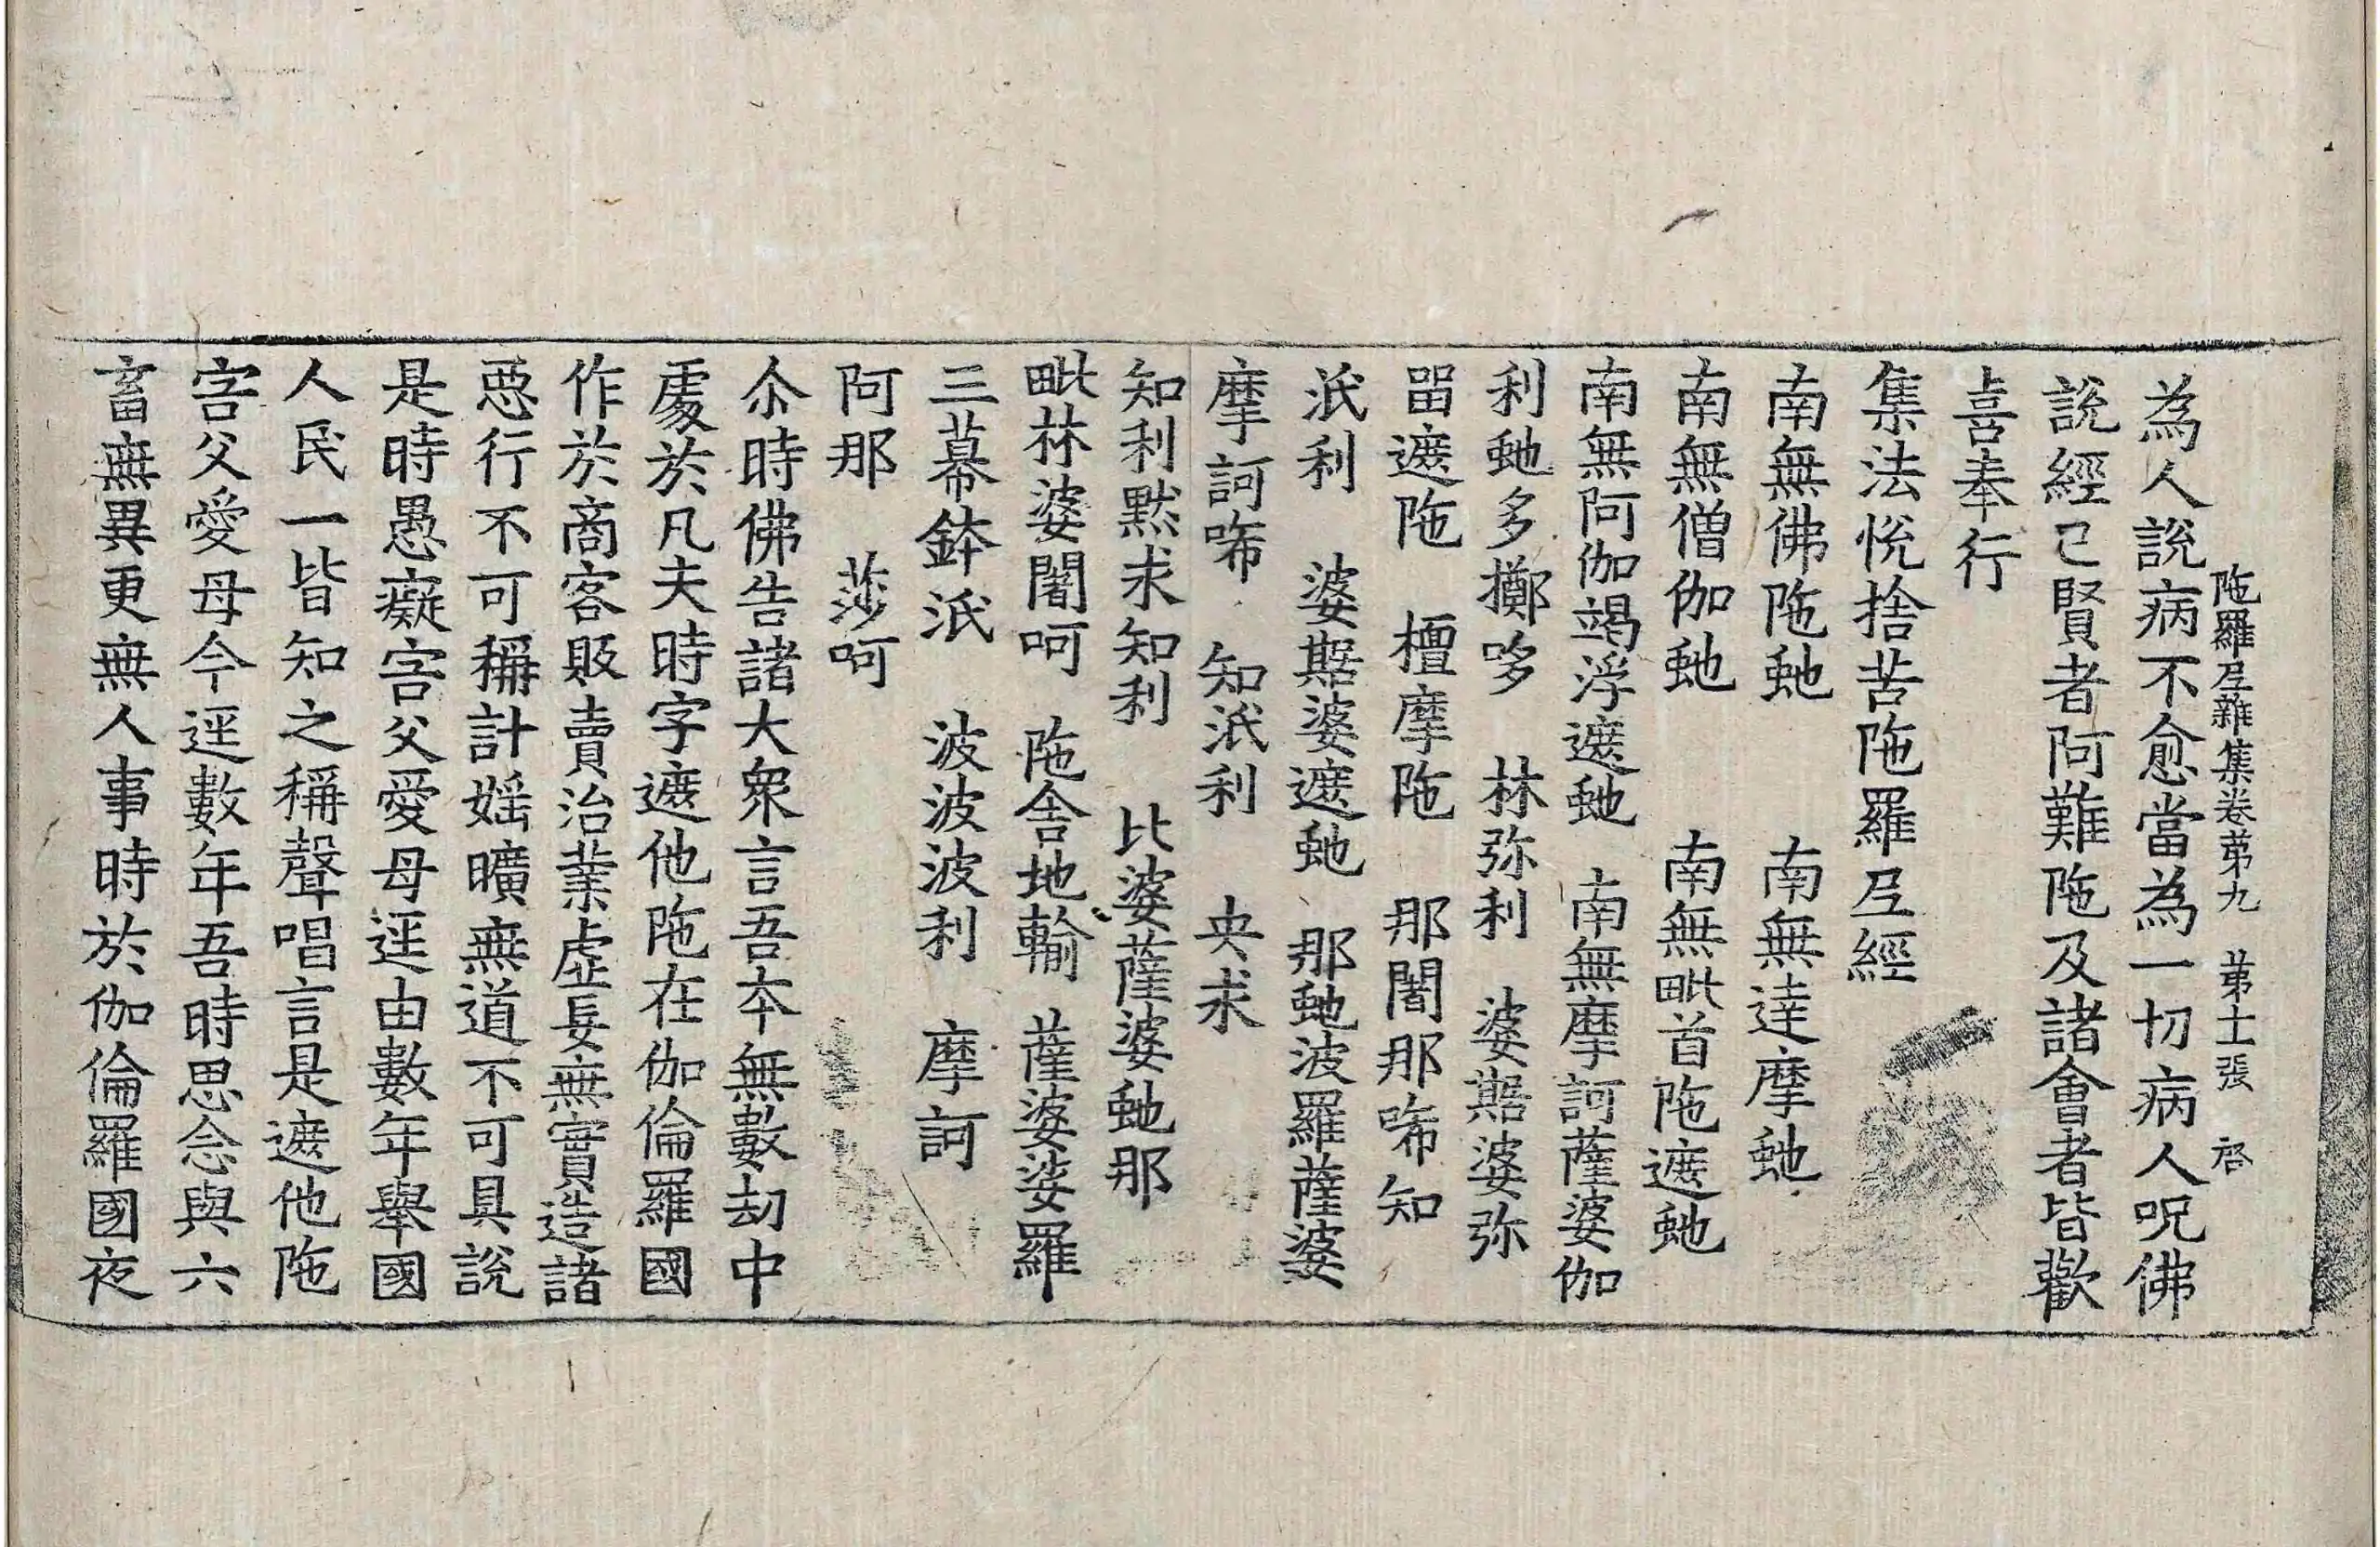 陁羅尼雜集卷第九 第十張 啓
為人說病不愈當為一切病人呪佛
說經已賢者阿難陁及諸會者皆歡
喜奉行
集法恱捨苦陁羅尼經
南無佛陁虵 南無達摩虵
南無僧伽虵 南無毗首陁遮虵
南無阿伽竭浮遮虵 南無摩訶薩婆伽
利虵多擲哆 林弥利 婆㨿婆弥
㽞遮陁 檀摩陁 那闍那唏知
泜利 婆㨿婆遮虵 那虵波羅薩婆
摩訶唏 知泜利 央求
知利黙求知利 比婆薩婆虵那
毗林婆闍呵 陁舎地輸 薩婆婆羅
三幕鉢泜 波波波利 摩訶
阿那 莎呵
尒時佛告諸大衆言吾本無數劫中
處於凡夫時字遮他陁在伽倫羅國
作於商客販賣治業虛妄無實造諸
惡行不可稱計婬曠無道不可具說
是時愚癡害父愛母逕由數年舉國
人民一皆知之稱聲唱言是遮他陁
害父愛母今逕數年吾時思念與六
畜無異更無人事時於伽倫羅國夜